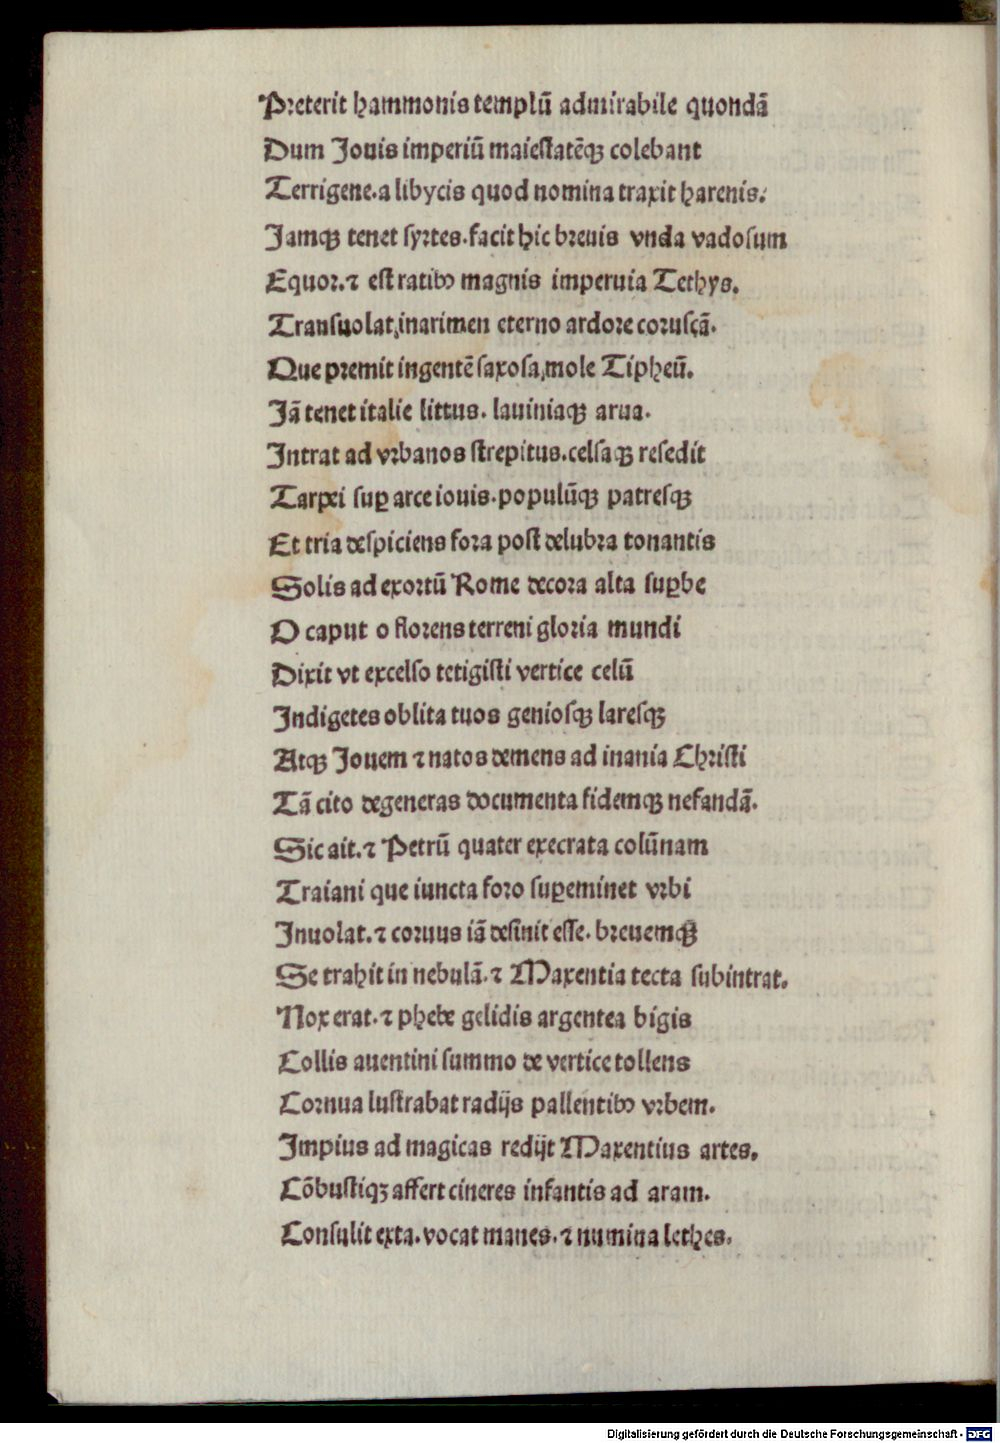 Preterit hammonis templū admirabile quondā
Dum Jouis imperiū maiestatēqꝫ colebant
Terrigene. a libycis quod nomina traxit harenis:
Jamqꝫ tenet syrtes. facit hic breuis vnda vadosum
Equor. ⁊ est ratibꝰ magnis imperuia Tethys.
Transuolat, inarimen eterno ardore coruscā.
Que premit ingentē saxosa, mole Tipheū.
Jā tenet italie littus. lauiniaqꝫ arua.
Intrat ad vrbanos strepitus. celsaqꝫ resedit
Tarpei suꝑ arce iouis. populūqꝫ patresqꝫ
Et tria despiciens fora post delubra tonantis
Solis ad exortū Rome decora alta suꝑbe
O caput o florens terreni gloria mundi
Dixit vt excelso tetigisti vertice celū
Indigetes oblita tuos geniosqꝫ laresqꝫ
Atqꝫ Jouem ⁊ natos demens ad inania Christi
Tā cito degeneras documenta fidemqꝫ nefandā.
Sic ait. ⁊ Petrū quater execrata colūnam
Traiani que iuncta foro suꝑeminet vrbi
Inuolat. ⁊ coruus iā desinit esse. breuemqꝫ
Se trahit in nebulā. ⁊ Maxentia tecta subintrat.
Nox erat. ⁊ phebe gelidis argentea bigis
Collis auentini summo de vertice tollens
Cornua lustrabat radijs pallentibꝰ vrbem.
Impius ad magicas redijt Maxentius artes.
Cōbustiqꝫ affert cineres infantis ad aram.
Consulit exta. vocat manes. ⁊ numina lethes.
Digitalisierung gefördert durch die Deutsche Forschungsgemeinschaft - DFG